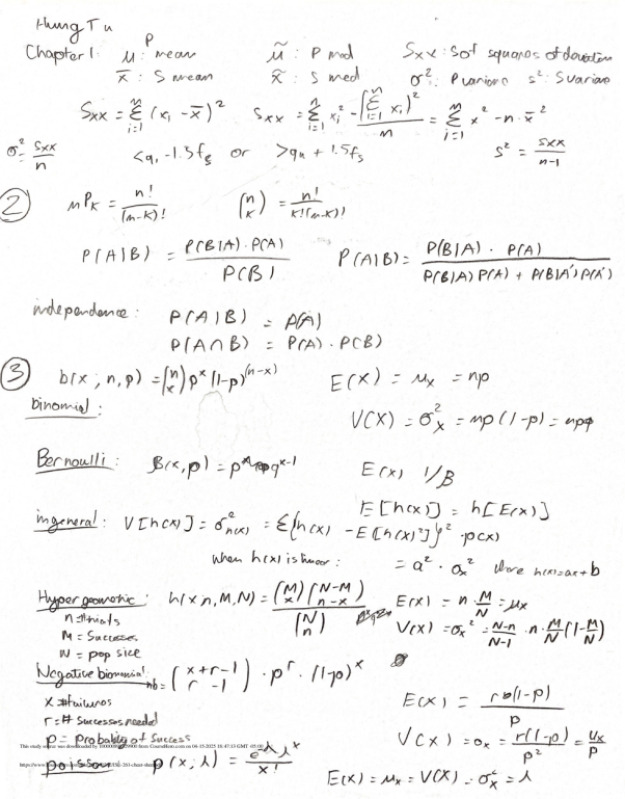 Hung Tu
Chapter 1: μ: P mean   μ̃: P med   Sxx: S of squares of deviation
x̄: S mean   x̃: S med   σ²: P variance   s²: S variance
Sxx = Σ_{i=1}^{n} (xᵢ - x̄)²   Sxx = Σ_{i=1}^{n} xᵢ² - [Σ_{i=1}^{n} xᵢ]²/n = Σ_{i=1}^{n} x² - n·x̄²
σ² = Sxx/n   <q₁ - 1.5fs or >qu + 1.5fs   s² = Sxx/(n-1)
② nPk = n!/(n-k)!   (n k) = n!/(k!(n-k)!)
P(A|B) = P(B|A)·P(A) / P(B)   P(A|B) = P(B|A)·P(A) / (P(B|A)P(A) + P(B|A')P(A'))
independence: P(A|B) = P(A)
P(A∩B) = P(A)·P(B)
③ b(x; n, p) = (n x) p^x (1-p)^(n-x)   E(X) = μx = np
binomial:
V(X) = σ²x = np(1-p) = npq
Bernoulli: B(x,p) = p^x q^x-1   E(x) 1/B
E[h(x)] = h[E(x)]
in general: V[h(x)] = σ²h(x) = Σ{h(x) - E[h(x)²]}² · p(x)
when h(x) is linear: = a² · σx²   where h(x)=ax+b
Hypergeometric: h(x, n, M, N) = (M x)(N-M n-x) / (N n)   E(x) = n·M/N = μx
n=#trials
M = Successes   V(x) = σx² = (N-n)/(N-1) · n · M/N (1 - M/N)
N = pop size
Negative binomial: nb = (x+r-1 r-1) · p^r · (1-p)^x
x = #failures   E(x) = r(1-p)/p
r = # Successes needed
p = Probability of success   V(X) = σx = r(1-p)/p² = μx/p
This study source was downloaded by from CourseHero.com on 04-15-2025 10:47:13 GMT -05:00
poisson p(x; λ) = e^-λ λ^x / x!
E(x) = μx = V(X) = σx² = λ